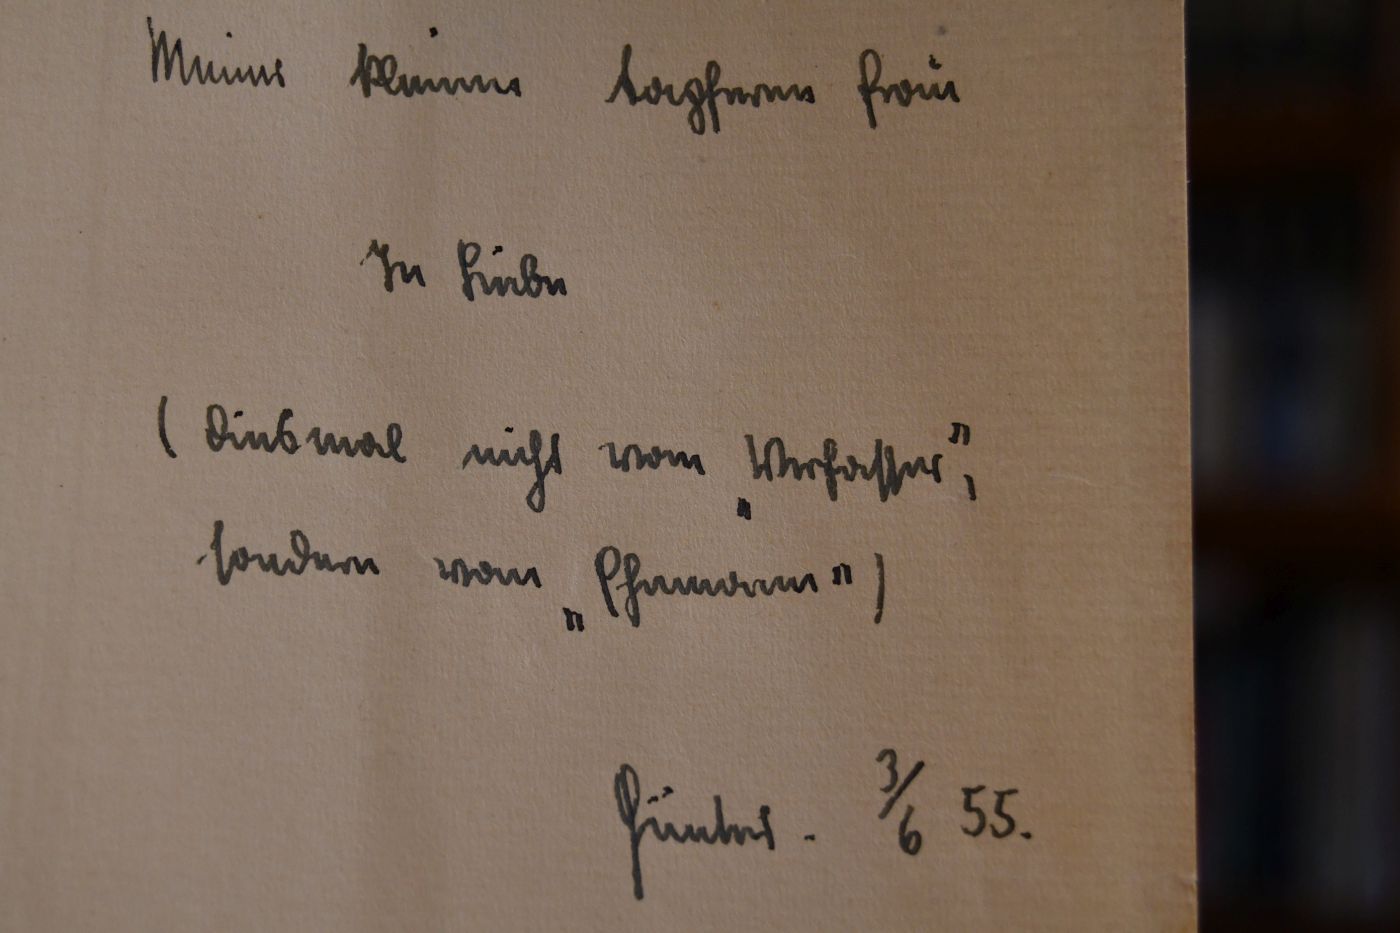 Meiner kleinen tapferen Frau
In Liebe
(Diesmal nicht vom „Verfasser",
sondern vom „Ehemann")
Günter. 3/6 55.